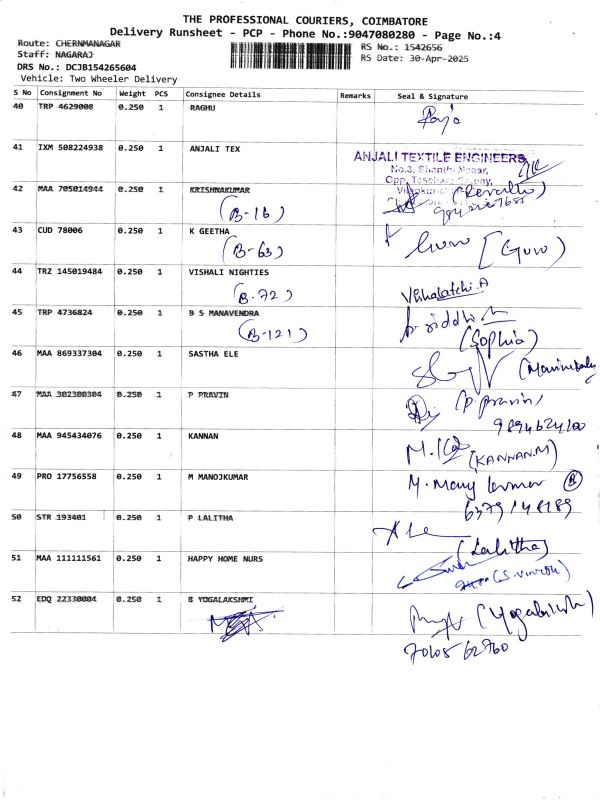 THE PROFESSIONAL COURIERS, COIMBATORE
Delivery Runsheet - PCP - Phone No.:9047080280 - Page No.:4
Route: CHERNMANAGAR
RS No.: 1542656
Staff: NAGARAJ
RS Date: 30-Apr-2025
DRS No.: DCJB154265604
Vehicle: Two Wheeler Delivery
S No Consignment No Weight PCS Consignee Details Remarks Seal & Signature
40 TRP 4629008 0.250 1 RAGHU
41 IXM 508224938 0.250 1 ANJALI TEX
ANJALI TEXTILE ENGINEERS
No.3, Shanthi Nagar,
42 MAA 705014944 0.250 1 KRISHNAKUMAR
(B-16)
43 CUD 78006 0.250 1 K GEETHA
(B-63) (Guru)
44 TRZ 145019484 0.250 1 VISHALI NIGHTIES
(B-72) Vishalatchi.A
45 TRP 4736824 0.250 1 B S MANAVENDRA
(B-121) (Sophia)
46 MAA 869337304 0.250 1 SASTHA ELE
47 MAA 302300304 0.250 1 P PRAVIN
(P. pravin)
9894624100
48 MAA 945434076 0.250 1 KANNAN
(KANNAN.M)
49 PRO 17756558 0.250 1 M MANOJKUMAR
M. Manoj kumar
6379148189
50 STR 193401 0.250 1 P LALITHA
(Lalitha)
51 MAA 111111561 0.250 1 HAPPY HOME NURS
52 EDQ 22330004 0.250 1 B YOGALAKSHMI